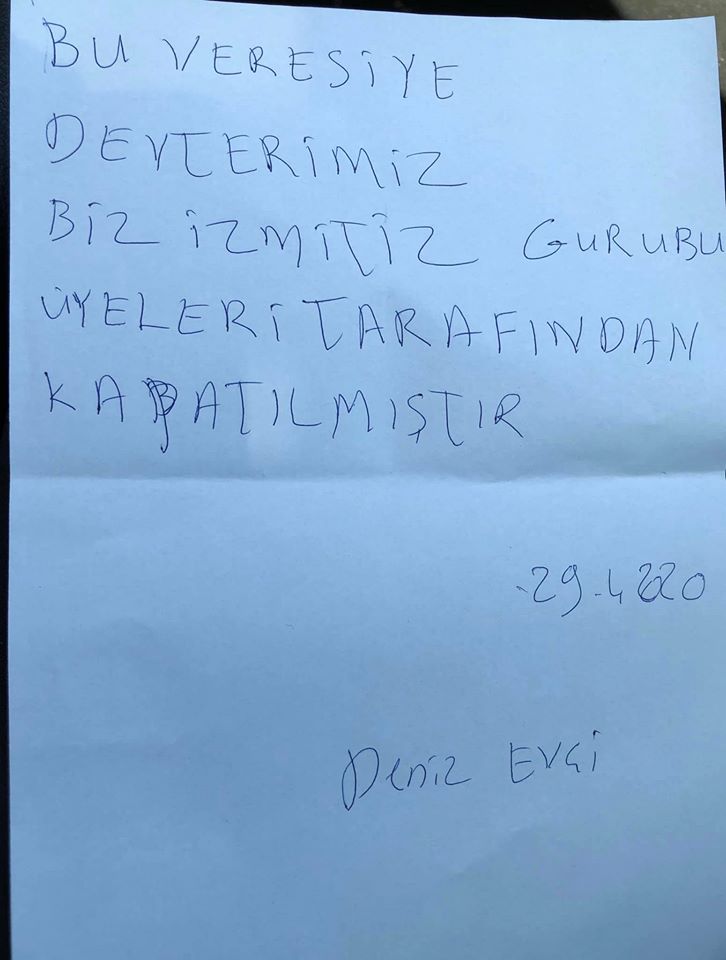 BU VERESİYE
DEVTERİMİZ
BİZ İZMİTİZ GURUBU
ÜYELERİ TARAFINDAN
KAPATILMIŞTIR
29.4 2020
Deniz EVCİ